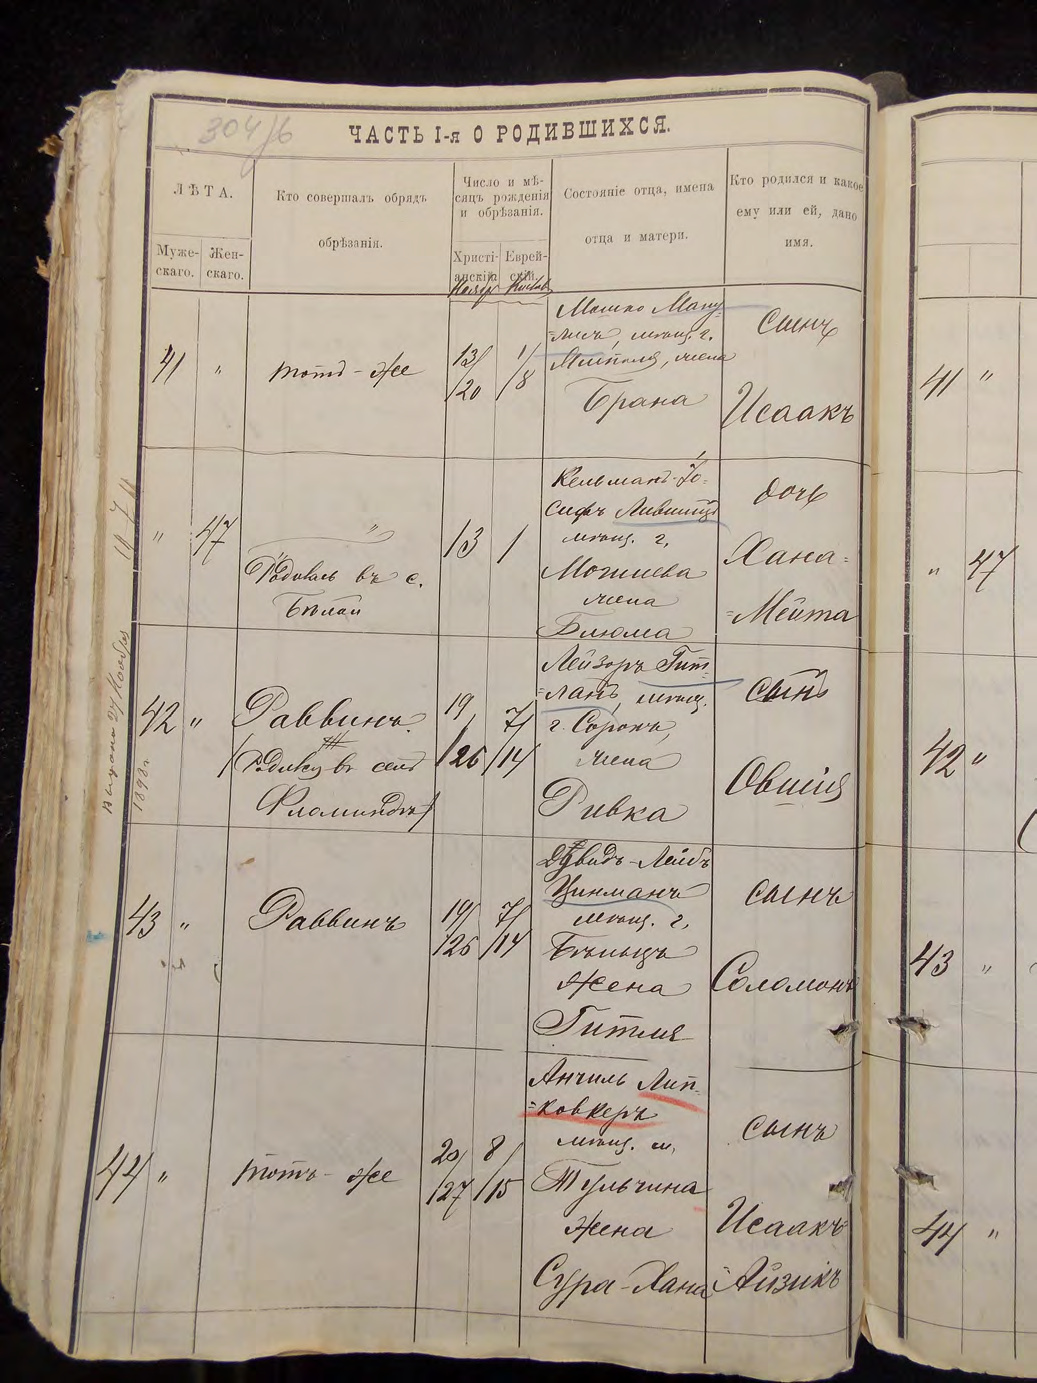 304/6
ЧАСТЬ I-я О РОДИВШИХСЯ.
ЛѢТА.
Муже-
скаго.
Жен-
скаго.
Кто совершалъ обрядъ
обрѣзанія.
Число и мѣ-
сяцъ рожденія
и обрѣзанія.
Христі-
анскій
Еврей-
скій.
Состояніе отца, имена
отца и матери.
Кто родился и какое
ему или ей, дано
имя.
Ноябр
Кислев
41 "
тотъ-же
13/
/20
1/
/8
Мошко Ману-
=лисъ, мѣщ. г.
жена
Брана
сынъ
Исаакъ
" 47
"
Родилась въ с.
Бѣлои
13
1
Кельманъ-Iо-
сифъ Лившицъ
мѣщ. г.
Могилева
жена
Блюма
дочь
Хана-
=Мейта
42 "
Раввинъ.
(Родился въ селѣ
19/
/26
7/
/14
Лейзоръ Гит-
=ланъ, мѣщ.
г. Сорокъ,
жена
Ривка
сынъ
Овшія
43 "
Раввинъ
19/
/26
7/
/14
Дувидъ-Лейбъ
Цинманъ
мѣщ. г.
Бѣльцъ
жена
Гитля
сынъ
Соломонъ
44 "
тотъ-же
20/
/27
8/
/15
Анчиль Лип-
=ковкеръ
мѣщ. м.
Тульчина
жена
Сура-Хана
сынъ
Исаакъ-
=Айзикъ
27 Ноября
1898 г.
41 "
" 47
42 "
43 "
44 "